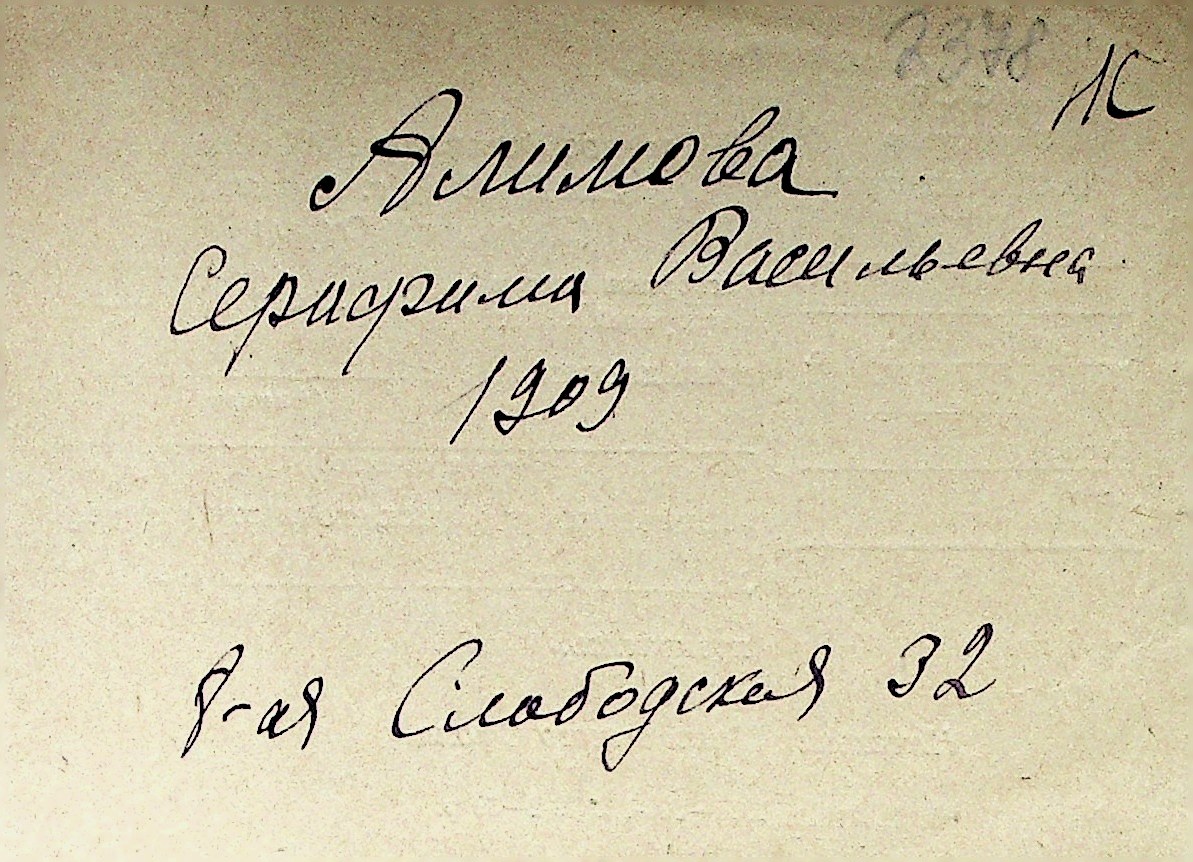 2378
Алимова
Серафима Васильевна
1909
8-ая Слободская 32